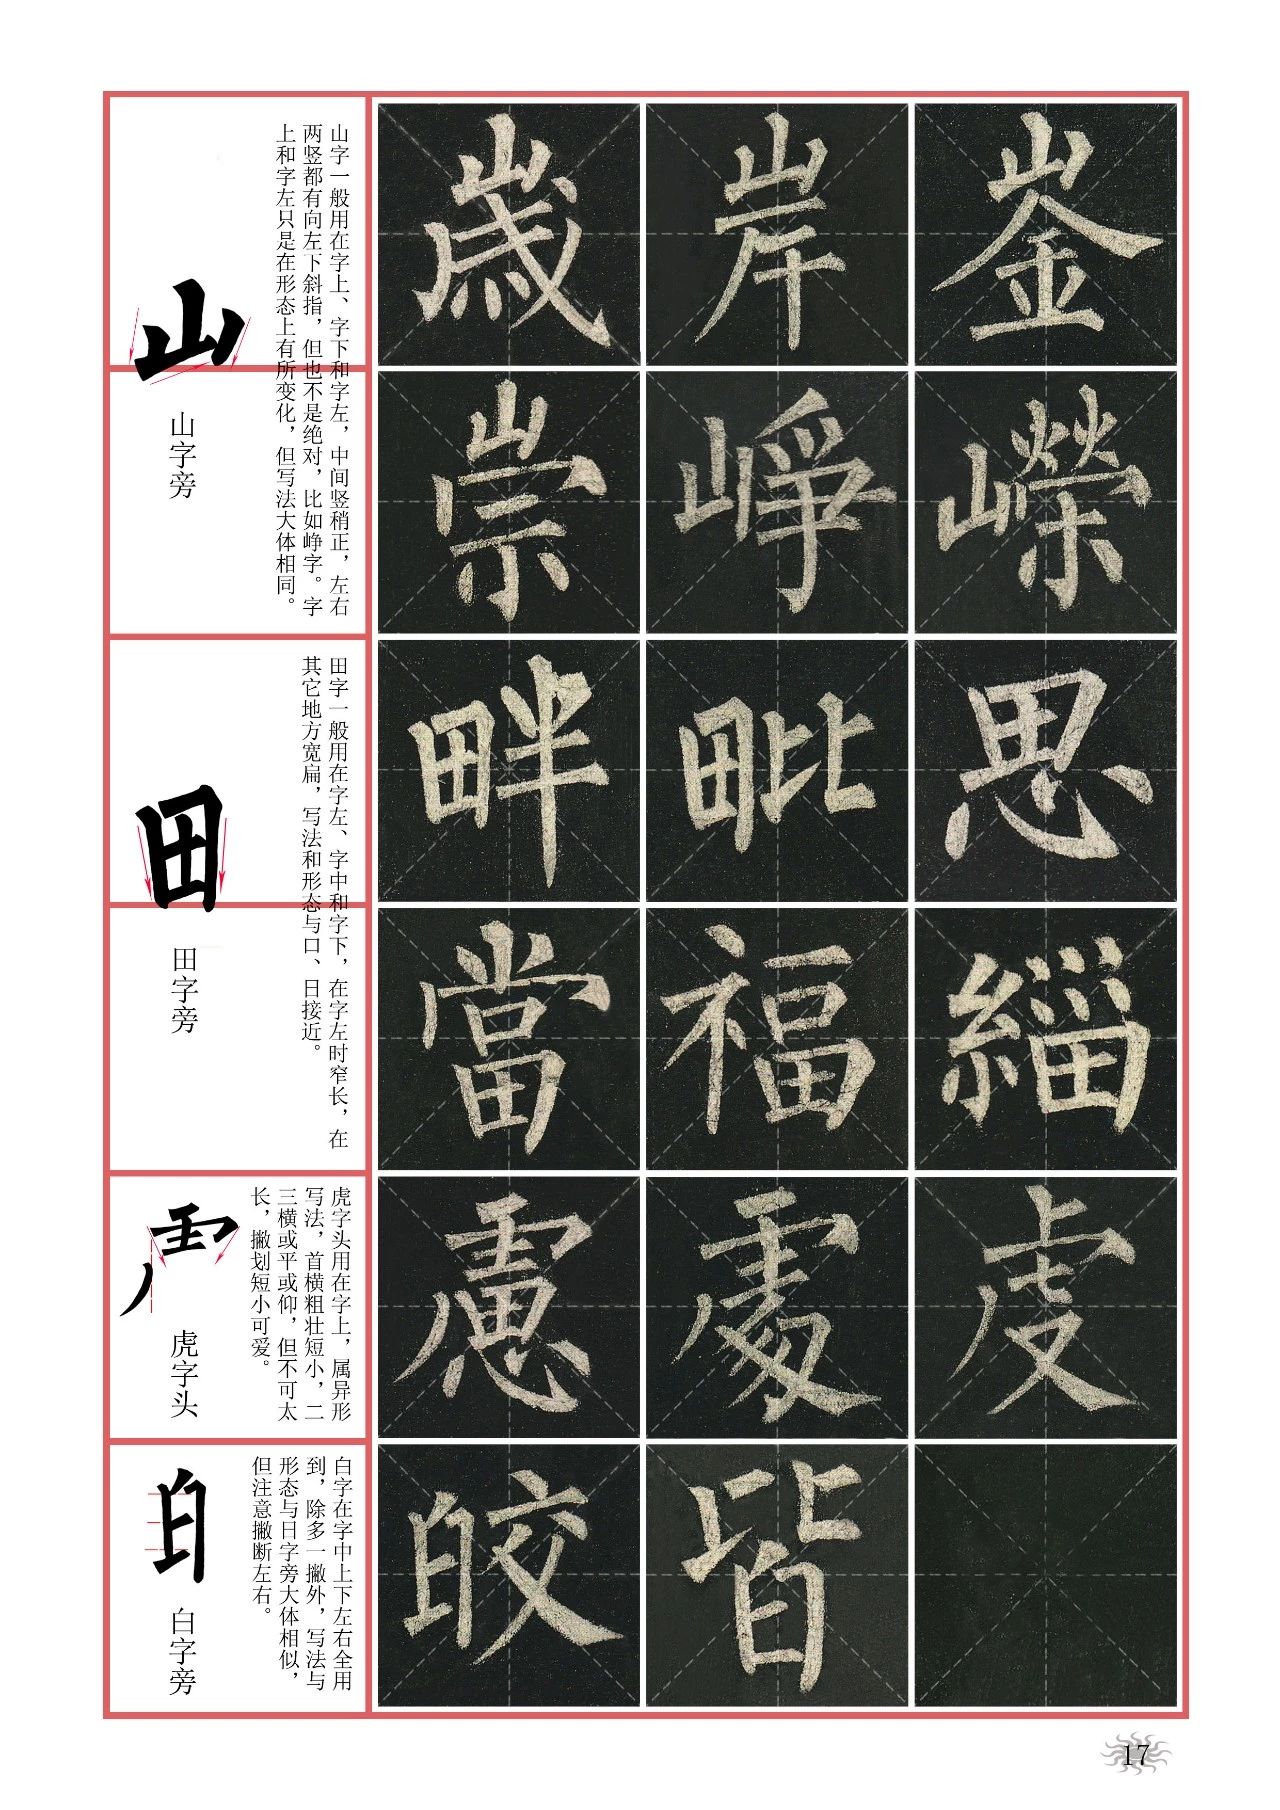 山
山字旁
山字一般用在字上、字下和字左，中间竖稍正，左右
两竖都有向左下斜指，但也不是绝对，比如峥字。字
上和字左只是在形态上有所变化，但写法大体相同。
歲 岸 崟
崇 崢 嶸
田
田字旁
田字一般用在字左、字中和字下，在字左时窄长，在
其它地方宽扁，写法和形态与口、日接近。
畔 毗 思
當 福 緇
虎字头
虎字头用在字上，属异形
写法，首横粗壮短小，二
三横或平或仰，但不可太
长，撇划短小可爱。
慮 處 虔
白
白字旁
白字在字中上下左右全用
到，除多一撇外，写法与
形态与日字旁大体相似，
但注意撇断左右。
皎 皆
17